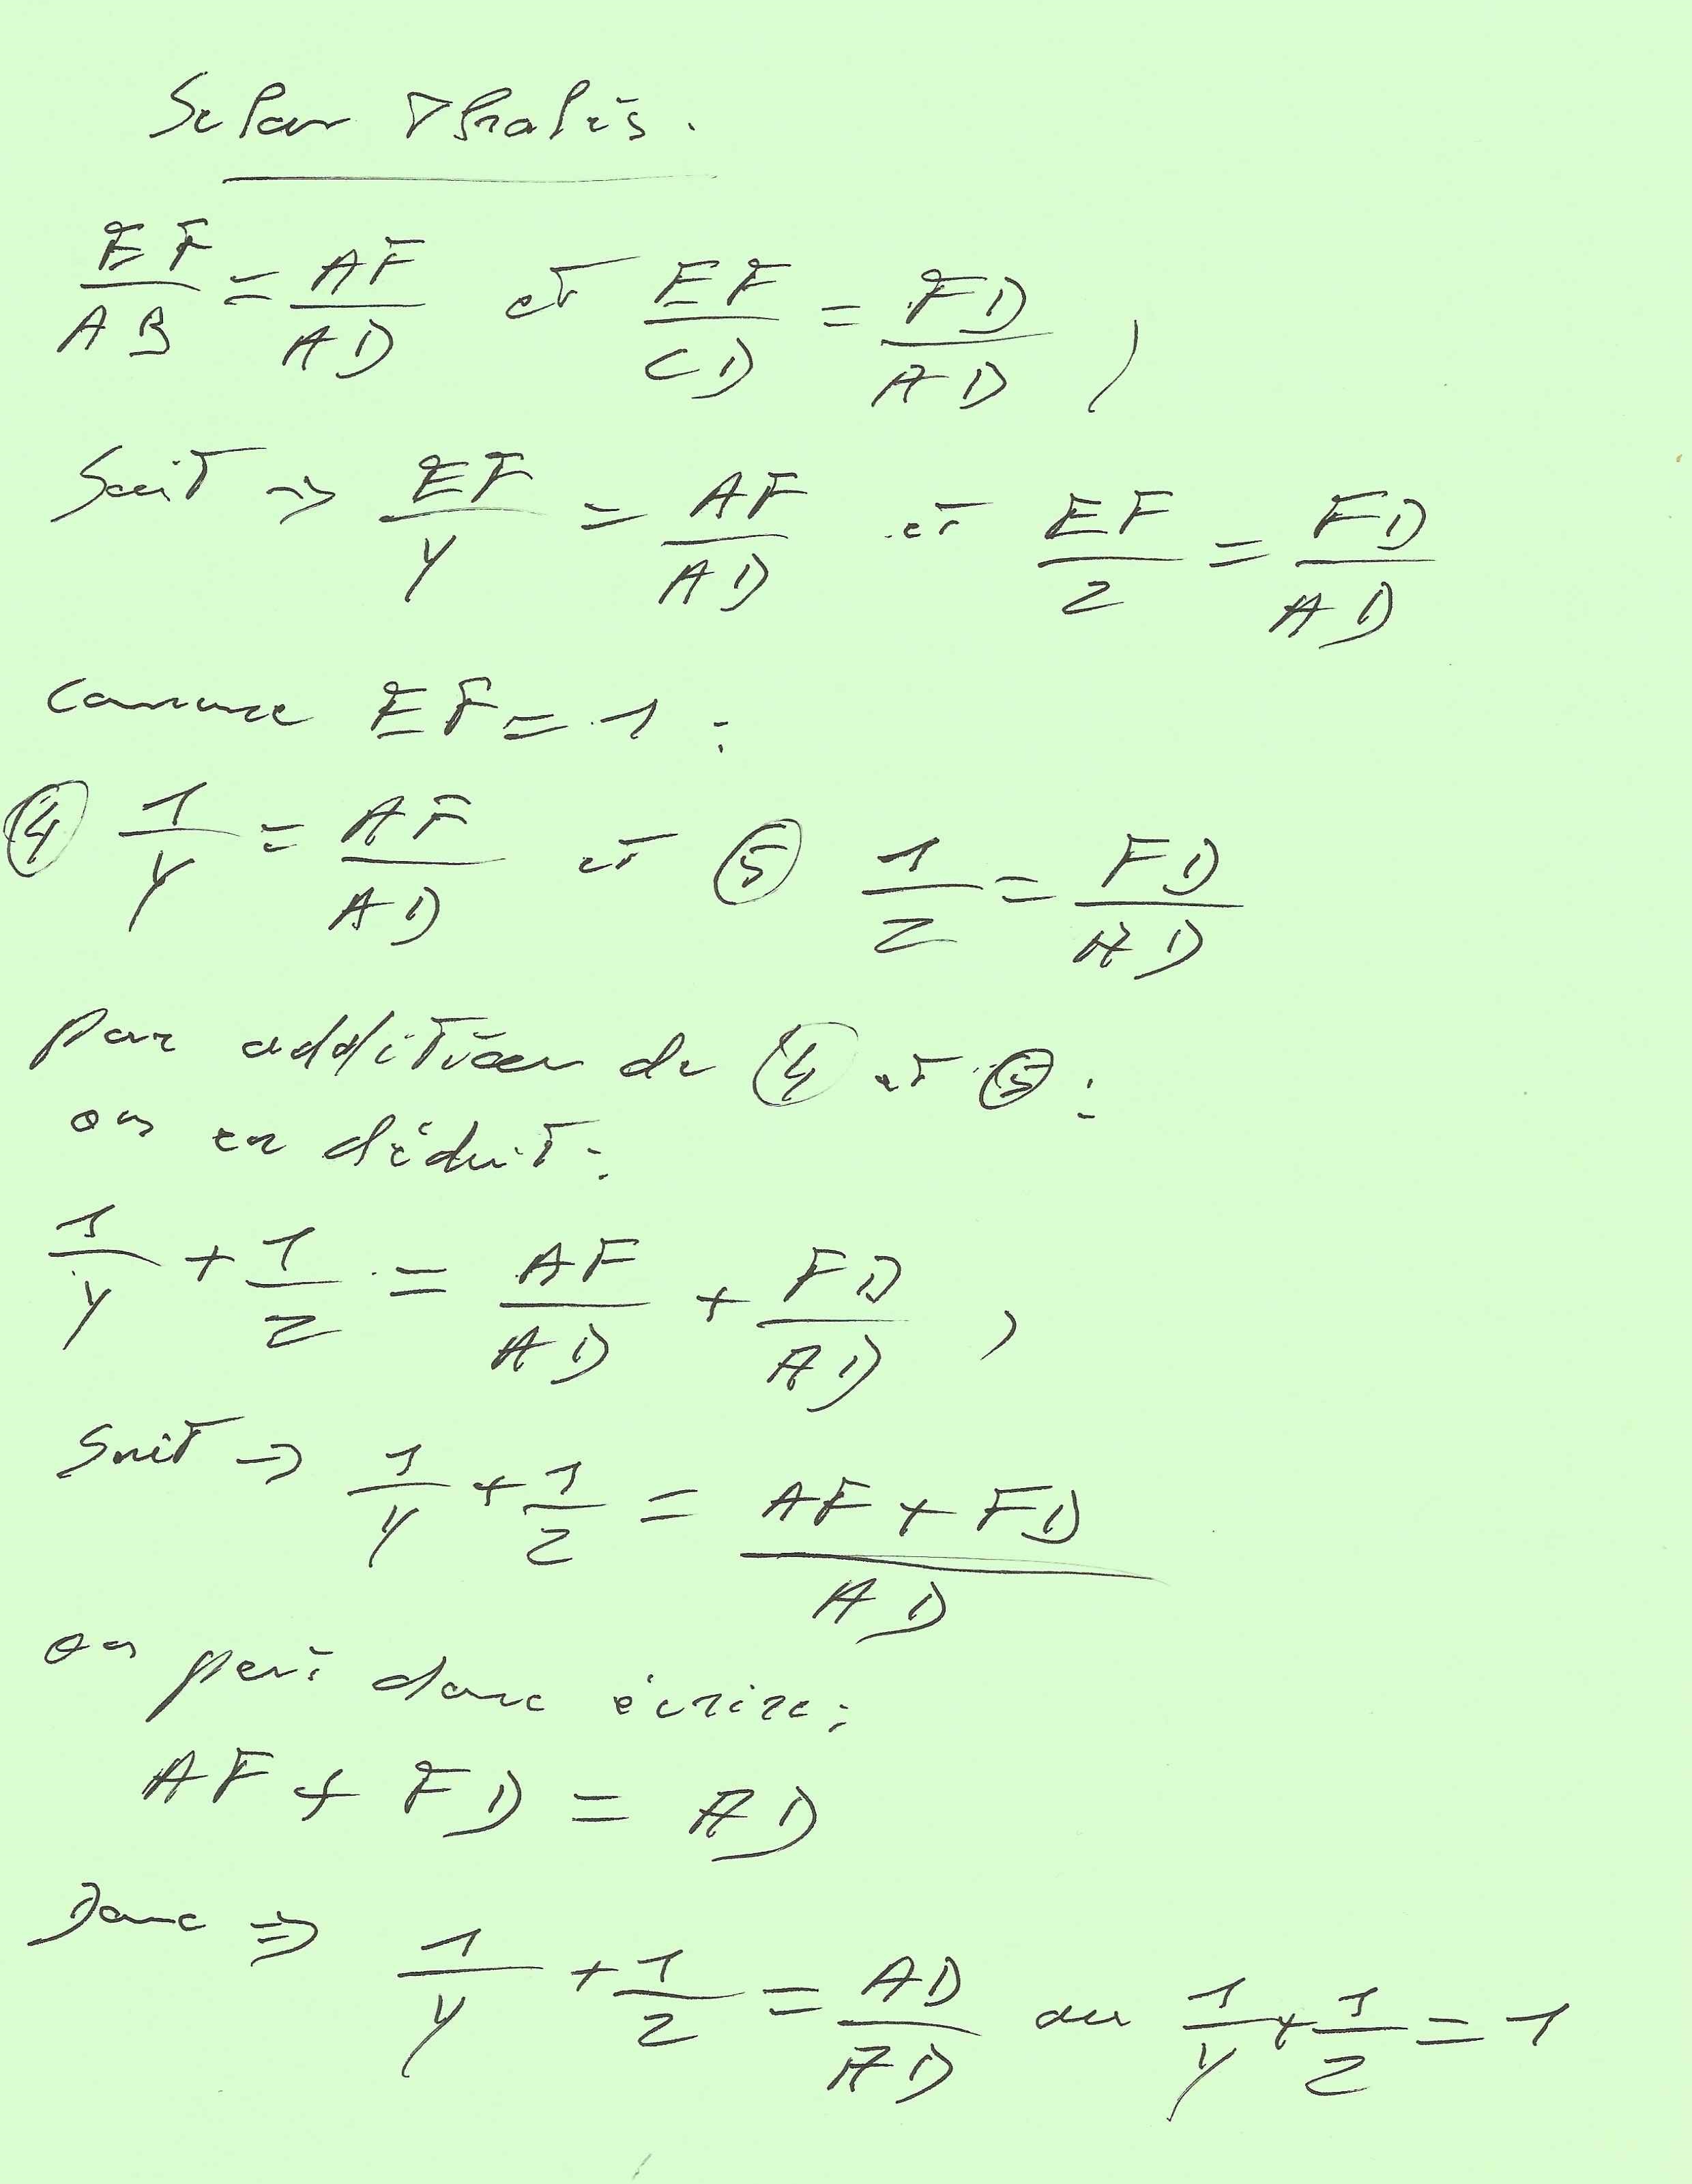 Selon Thalès.
EF/AB = AF/AD et EF/CD = FD/AD,
Soit => EF/Y = AF/AD et EF/Z = FD/AD
comme EF = 1 :
④ 1/Y = AF/AD et ⑤ 1/Z = FD/AD
par addition de ④ et ⑤ :
on en déduit :
1/Y + 1/Z = AF/AD + FD/AD,
Soit => 1/Y + 1/Z = (AF + FD)/AD
on peut donc écrire :
AF + FD = AD
Donc => 1/Y + 1/Z = AD/AD ou 1/Y + 1/Z = 1